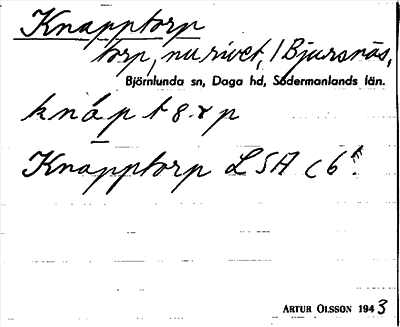 Knapptorp
torp, nu rivet, / Bjursnäs,
Björnlunda sn, Daga hd, Södermanlands län.
knáptərp
Knapptorp LSA c 6
ARTUR OLSSON 1943